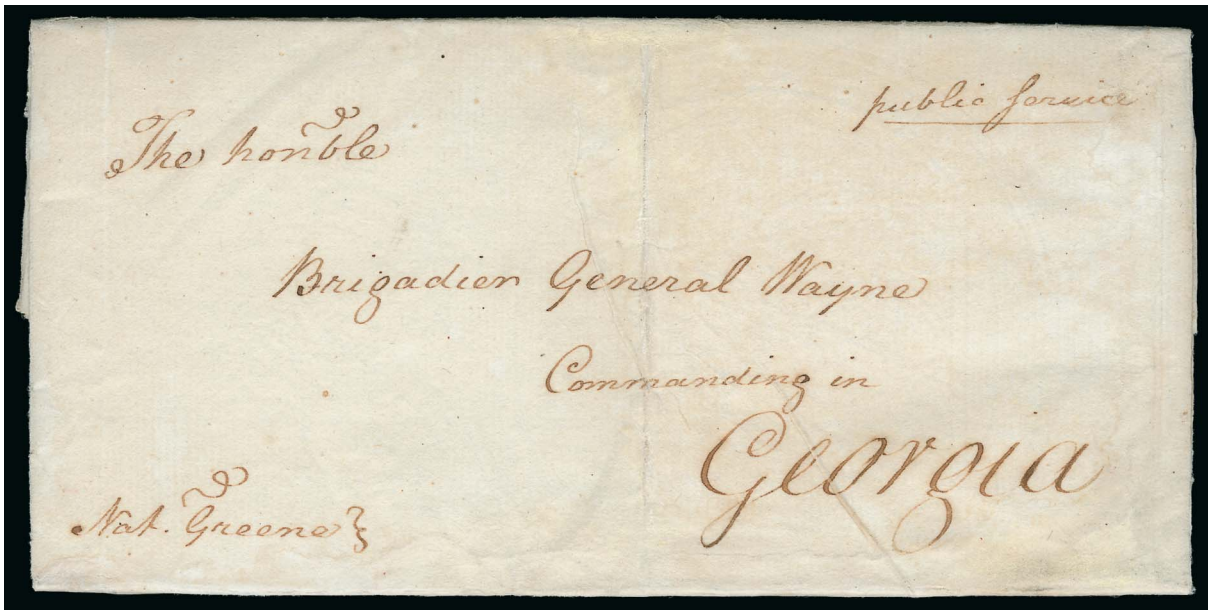 public Service
The honble
Brigadier General Wayne
Commanding in
Georgia
Nat. Greene